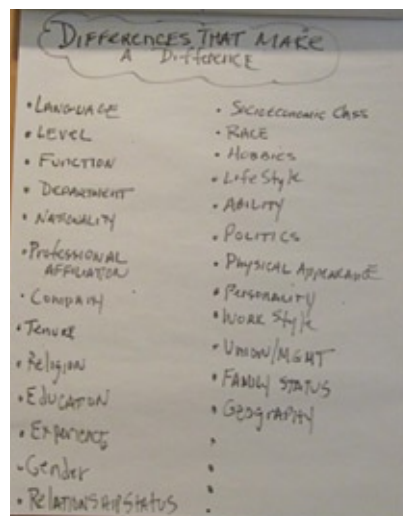 DIFFERENCES THAT MAKE
A DIFFERENCE
• LANGUAGE
• LEVEL
• FUNCTION
• DEPARTMENT
• NATIONALITY
• PROFESSIONAL
AFFILIATION
• COMPANY
• Tenure
• Religion
• EDUCATION
• EXPERIENCE
• Gender
• RELATIONSHIP STATUS
• SOCIOECONOMIC CLASS
• RACE
• HOBBIES
• LifeStyle
• ABILITY
• POLITICS
• PHYSICAL APPEARANCE
• Personality
• WORK Style
• UNION/MGMT
• FAMILY STATUS
• GEOGRAPHY